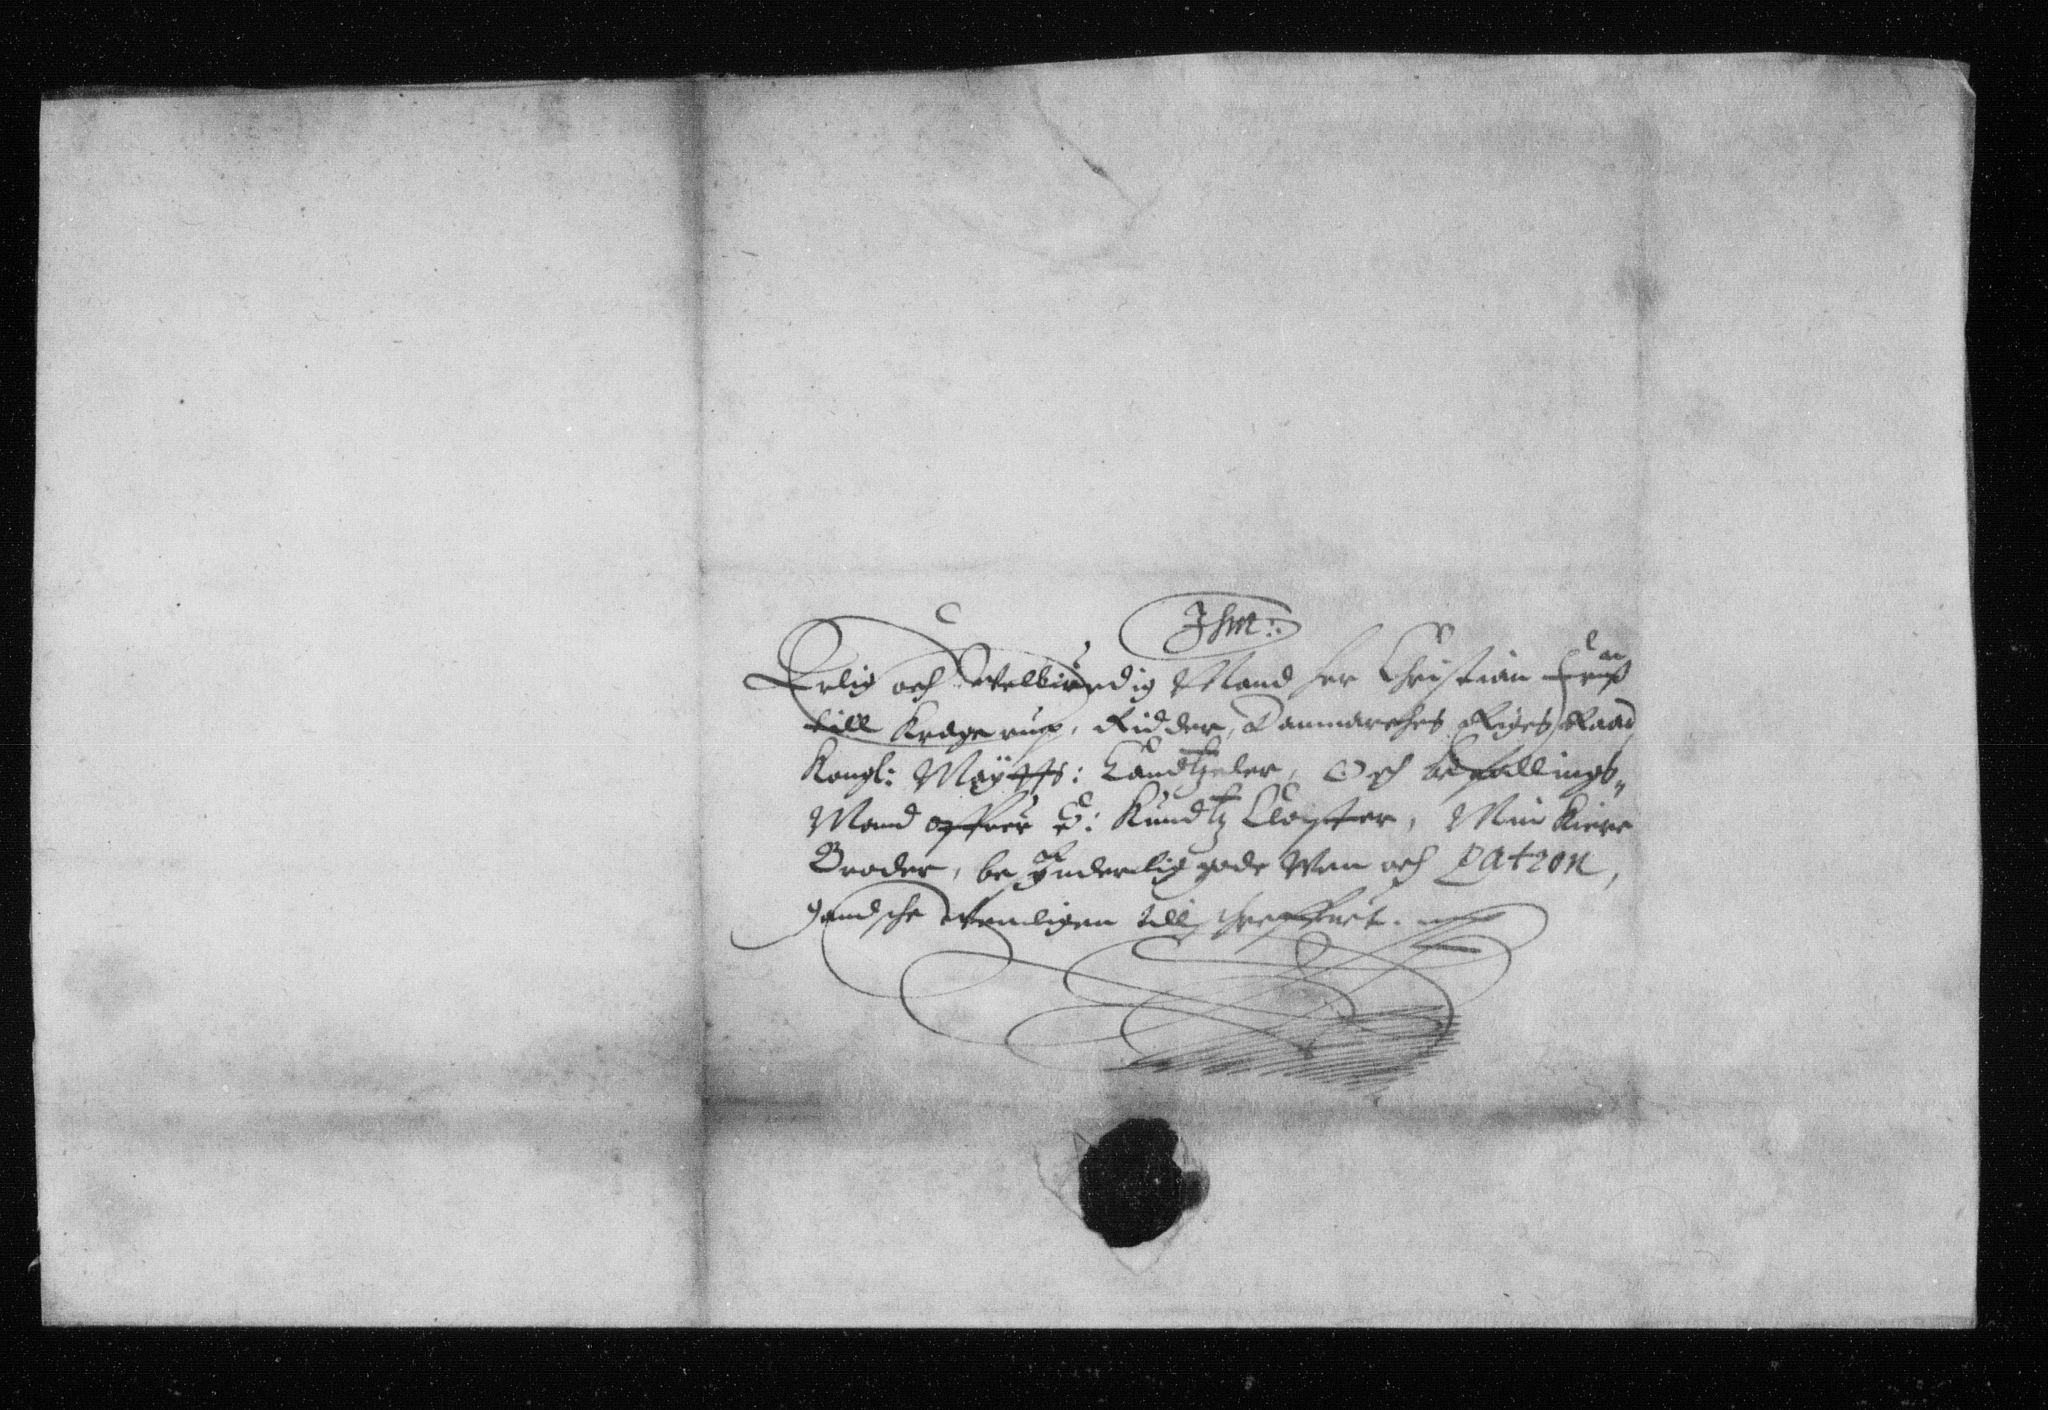 Ihm::
Erlig och Welbiurdig Mand Her Christian Friiß
till Kragerup, Ridder, Danmarckes Riges Raad
Kongl: Maÿtts: Candtzeler, Och befallings-
Mand offuer S: Knudtz Closter, Min kiere
Broder, besynderlig gode Wen och Patron,
gandsche Wenligen tillschreffuet.